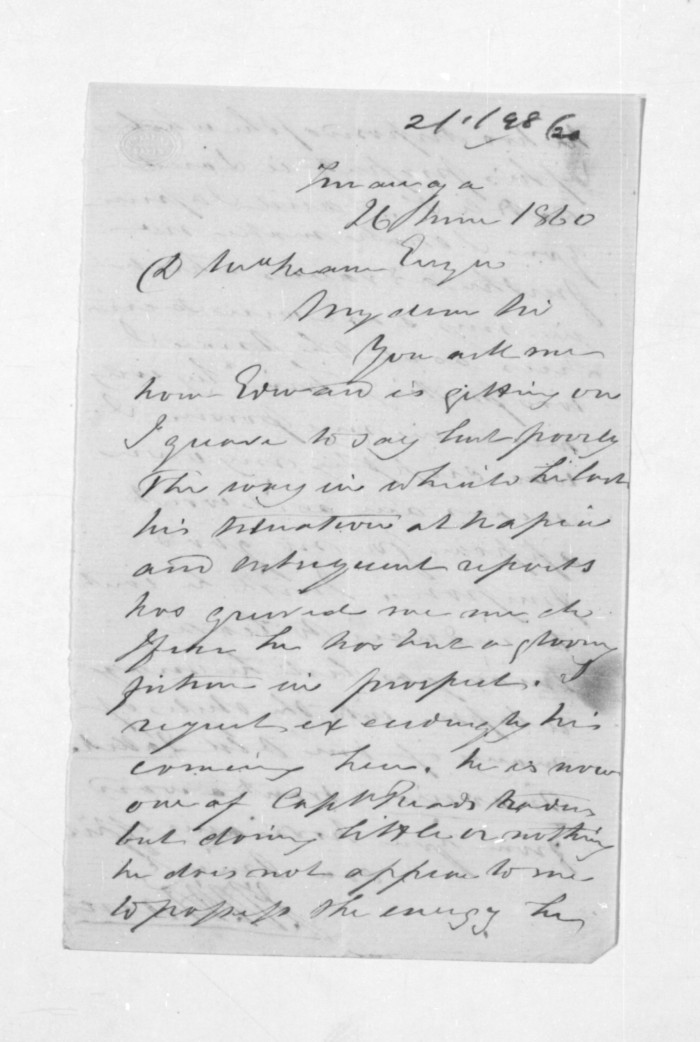 Turanga
26 June 1860
D McLean Esqre
My dear Sir
You ask me
how Edward is getting on
I greave to say but poorly
The way in which he lost
his situation at Napier
and subsequent reports
has grieved me much
I fear he has but a gloomy
future in prospect. I
regret exceedingly his
coming here. he is now
one of Captn Reads traders
but doing little or nothing
he does not appear to me
to possess the energy he